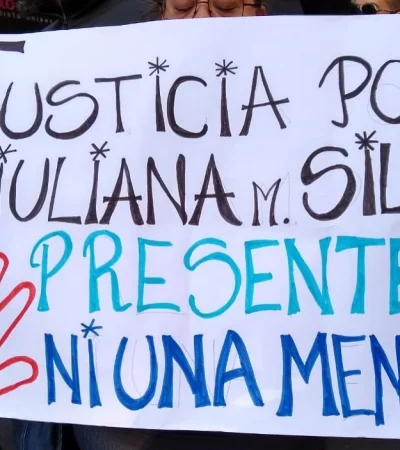 JUSTICIA PO
JULIANA M. SIL
PRESENTE
NI UNA MEN